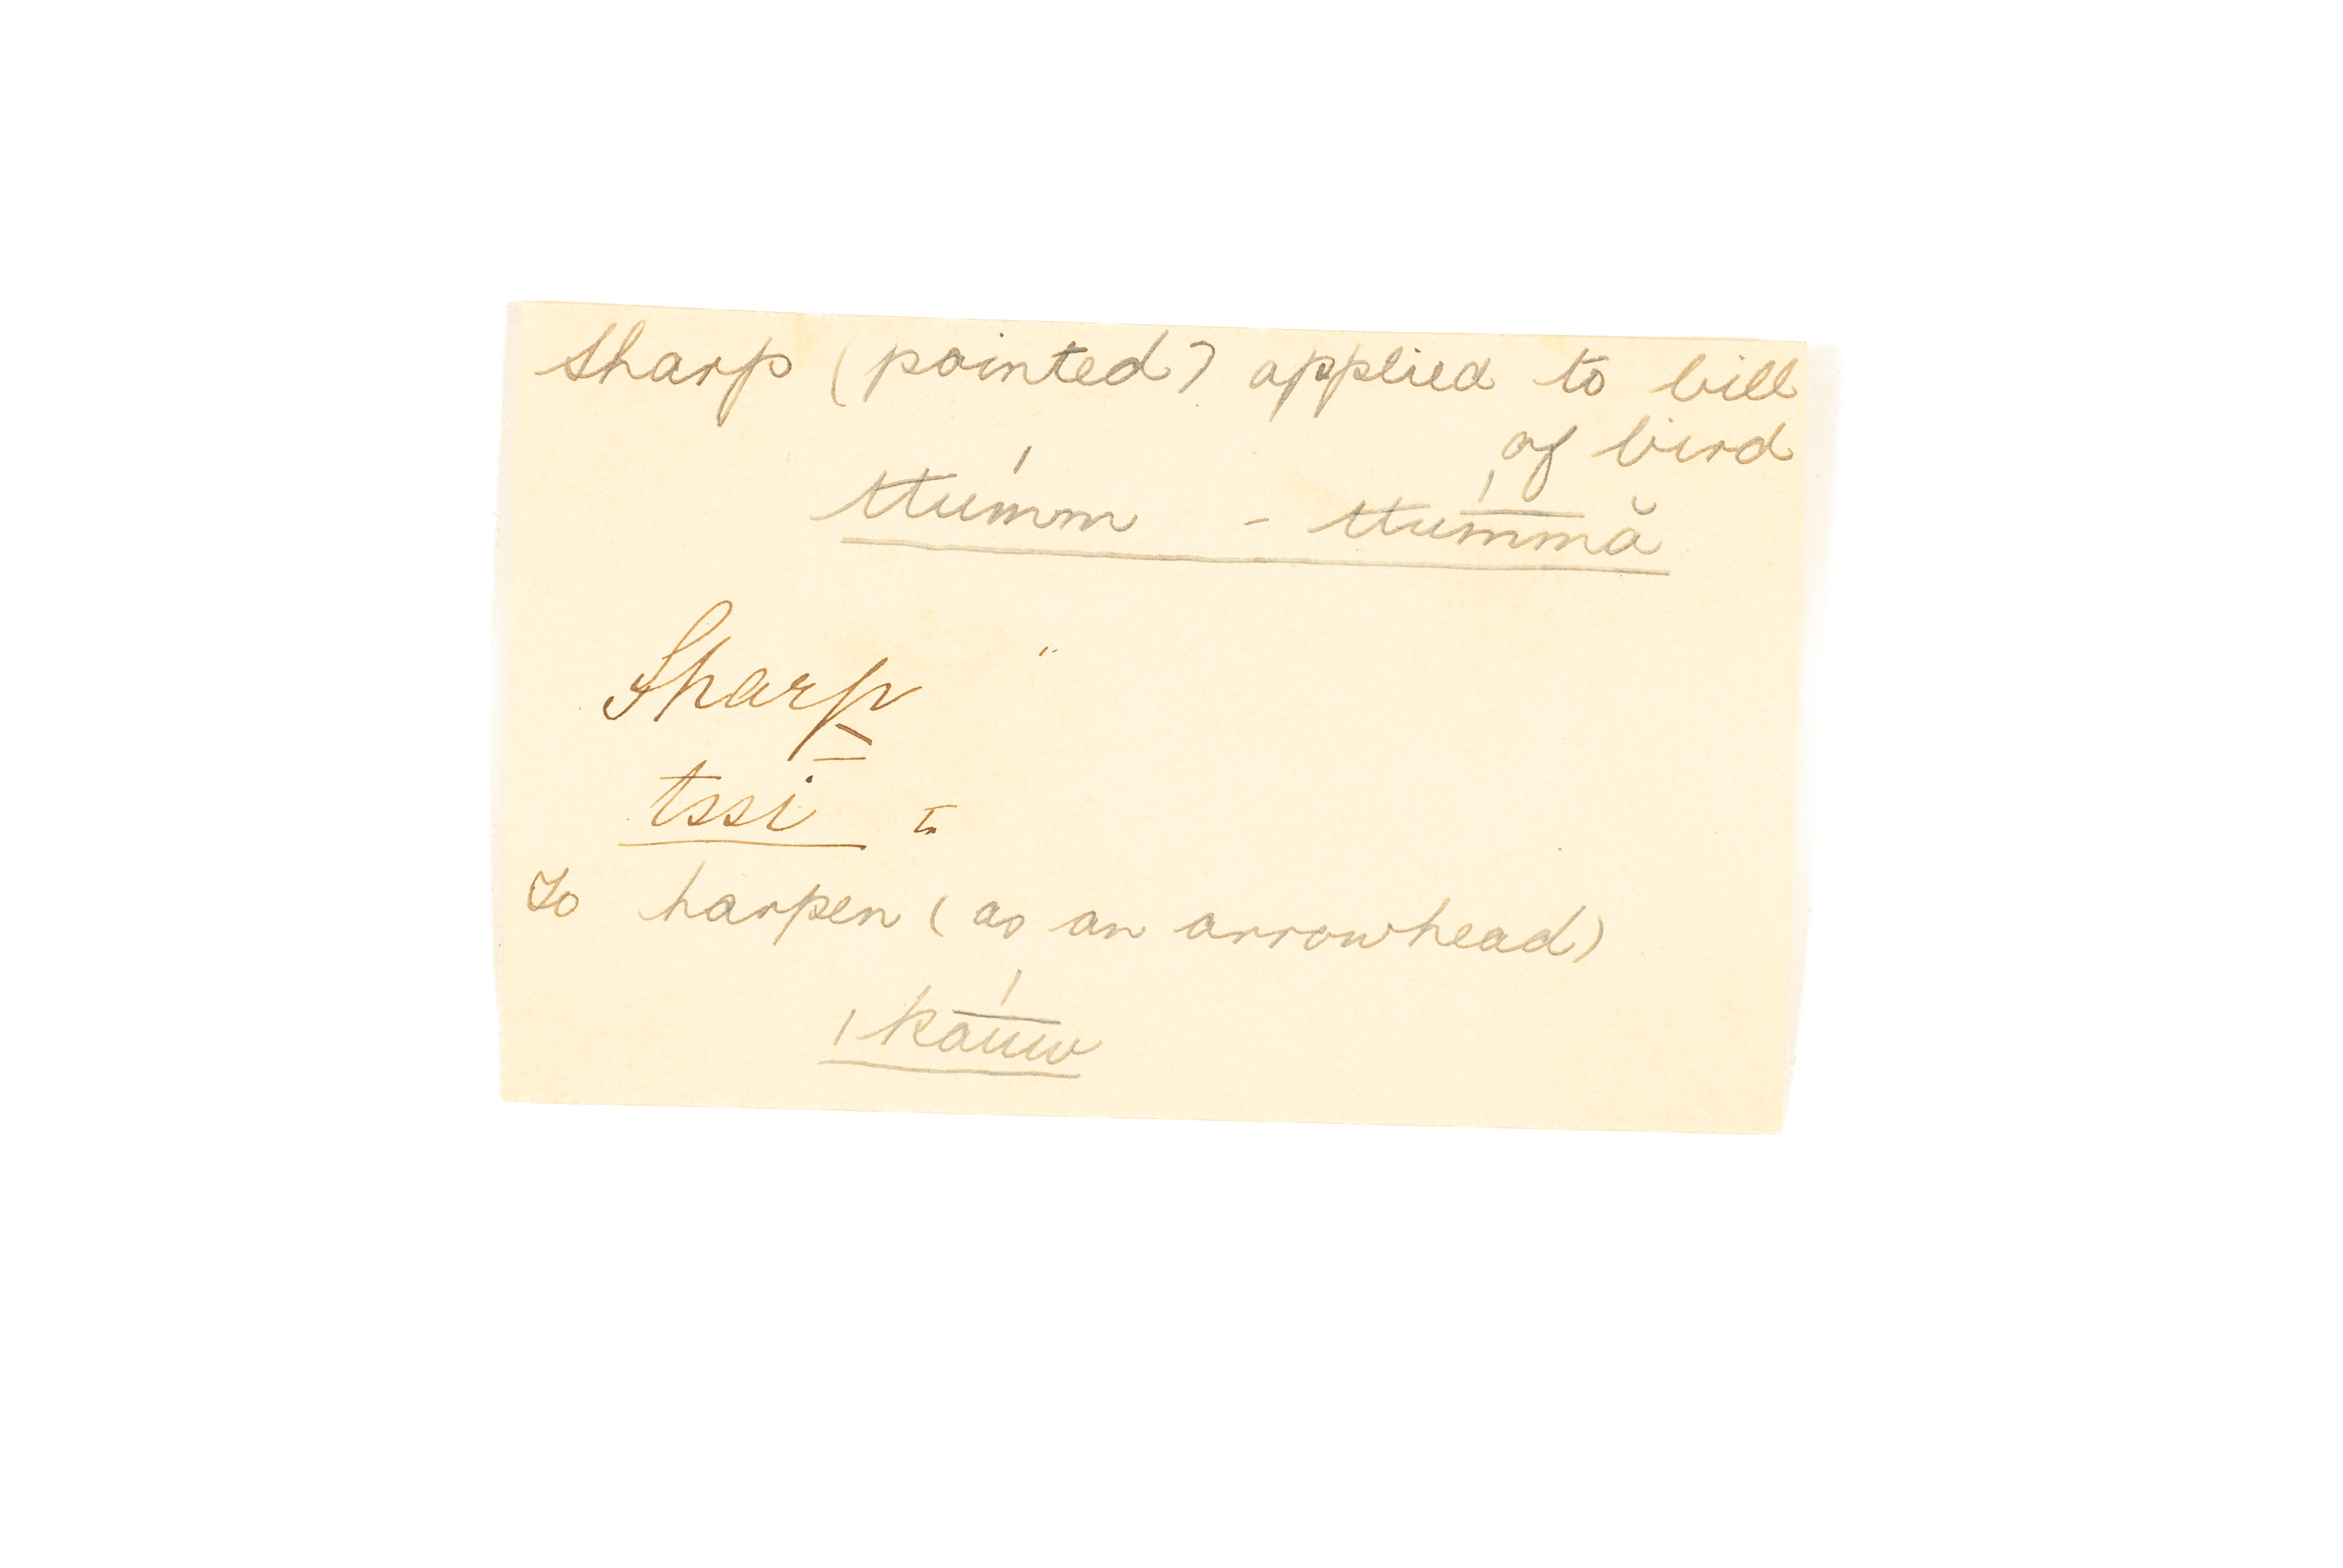 Sharp (pointed) applied to bill
of bird
ttumm - ttummă
Sharp "
tssi =
To harpen (as an arrowhead)